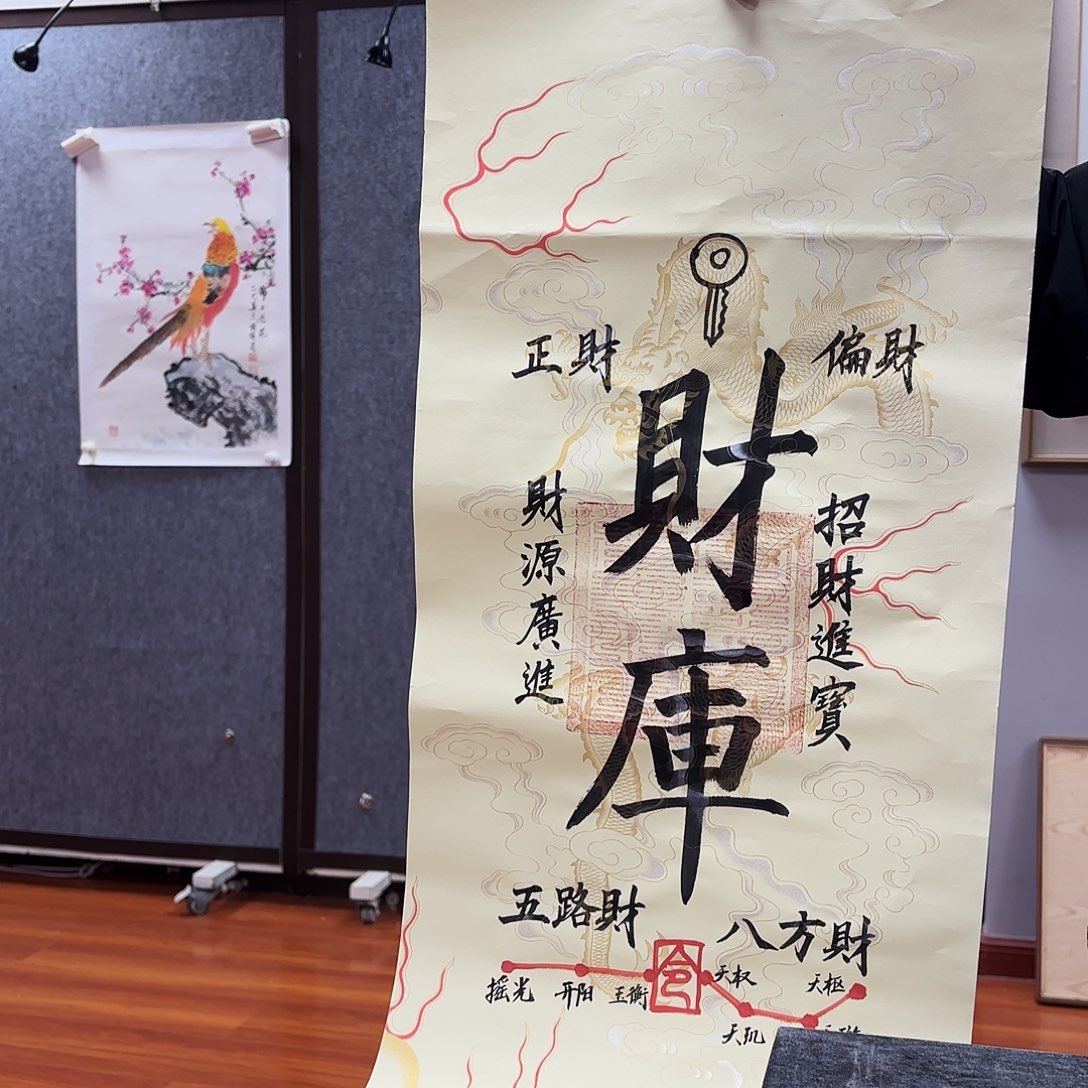 正財
偏財
財庫
財源廣進
招財進寶
五路財
八方財
令
摇光
开阳
玉衡
天权
天玑
天枢